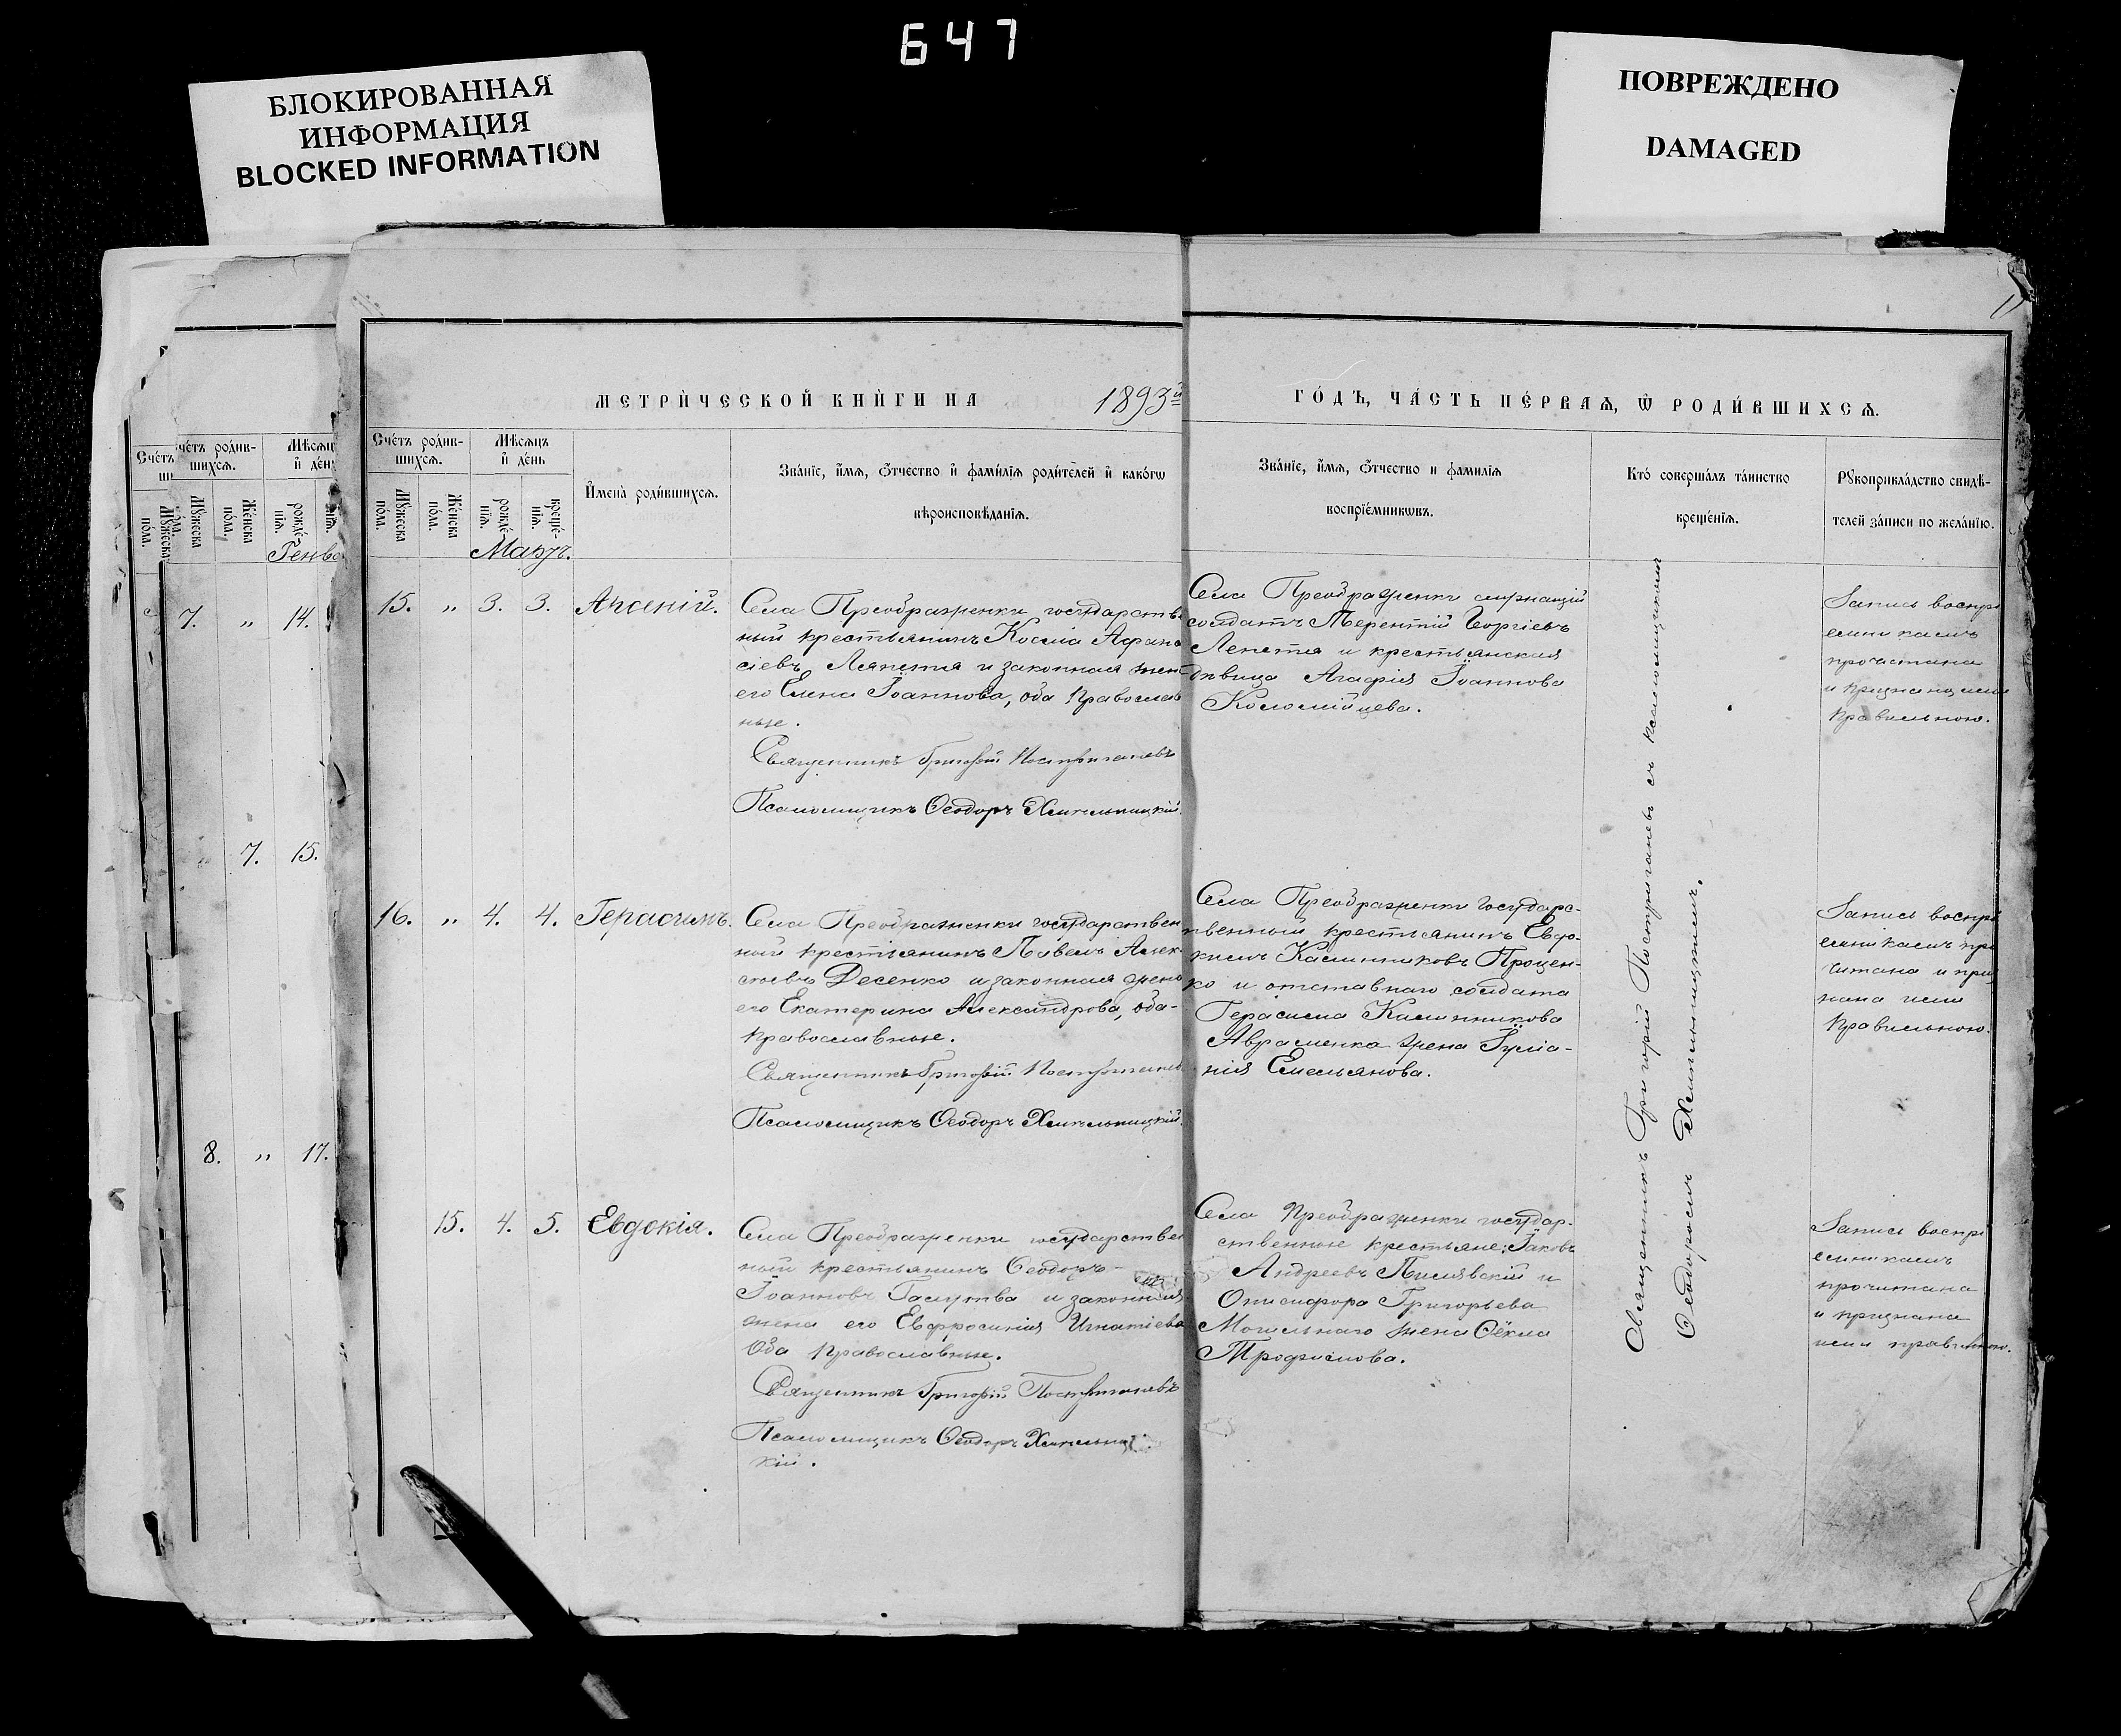 647
БЛОКИРОВАННАЯ
ИНФОРМАЦИЯ
BLOCKED INFORMATION
ПОВРЕЖДЕНО
DAMAGED
МЕТРИ́ЧЕСКОЙ КНИ́ГИ НА 1893й
ГО́ДЪ, ЧА́СТЬ ПЕ́РВАѦ, Ѡ҆ РОДИ́ВШИХСѦ.
Сче́тъ роди́в-
шихсѧ.
Мꙋ́жеска
по́ла.
Же́нска
по́ла.
Мѣ́сѧцъ
и҆ де́нь
рожде́-
нїѧ.
креще́-
нїѧ.
Мартъ.
И҆мена̀ роди́вшихсѧ.
Зва́нїе, и҆́мѧ, ѻ҆́тчество и҆ фамѝлїѧ роди́телей и҆ како́гѡ
вѣроисповѣ́данїѧ.
Зва́нїе, и҆́мѧ, ѻ҆́тчество и фамилїѧ
воспрїе́мникѡвъ.
Кто́ соверша́лъ та́инство
креще́нїѧ.
Рꙋкоприкла́дство свидѣ́-
телей за́писи по жела́нїю.
Сче́тъ
четъ роди́в-
шихсѧ.
Мꙋ́жеска
по́ла.
Же́нска
по́ла.
рожде́-
нїѧ.
7. „ 14.
7. 15.
8. „ 17.
15. „ 3. 3. Арсеній.
Села Преображенки государств
ный крестьянинъ Косма Афана
сіевъ Ляпетя и законная жен
его Елена Іоаннова, оба православ
ные.
Священникъ Григорій Постригачевъ
Псаломщикъ Ѳеодоръ Хмельницкій.
Села Преображенки служащій
солдатъ Терентій Георгіевъ
Лепетя и крестьянская
дѣвица Агафія Іоаннова
Коломійцева.
Запись воспрі
емникамъ
прочитана
и признана ими
правильною.
16. „ 4. 4. Герасимъ.
Села Преображенки государствен
ный крестьянинъ Павелъ Алек-
сѣевъ Десенко и законная жена
его Екатерина Александрова, оба-
православные.
Священникъ Григорій
Псаломщикъ Ѳеодоръ Хмельницкій.
Села Преображенки государс-
твенный крестьянинъ Евдо-
кимъ Калинниковъ Процен-
ко и отставнаго солдата
Герасима Калинникова
Авраменка жена Іуліа-
нія Емельянова.
Запись воспрі
емникамъ про
читана и приз
нана ими
правильною.
15. 4. 5. Евдокія.
Села Преображенки государствен
ный крестьянинъ Ѳеодоръ-
Іоанновъ и законная
жена его Евфросинія Игнатіева
Оба православные.
Священникъ Григорій Постригачевъ
Псаломщикъ Ѳеодоръ Хмельниц
кій.
Села Преображенки государ-
ственные крестьяне: Іаковъ
Андреевъ Пилявскій и
Онисифора Григорьева
Могильнаго жена Ѳёкла
Трофимова.
Запись воспрі
емникамъ
прочитана
и признана
ими правильною.
Священникъ Григорій Постригачевъ съ псаломщикомъ
Ѳеодоромъ Хмельницкимъ.